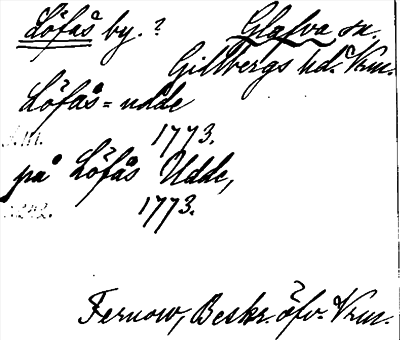 Löfås by.? Glafva sn.
Gillbergs hd. Vrm.
Löfås=udde
1773.
på Löfås Udde,
1773.
Fernow, Beskr. öfv. Vrm.